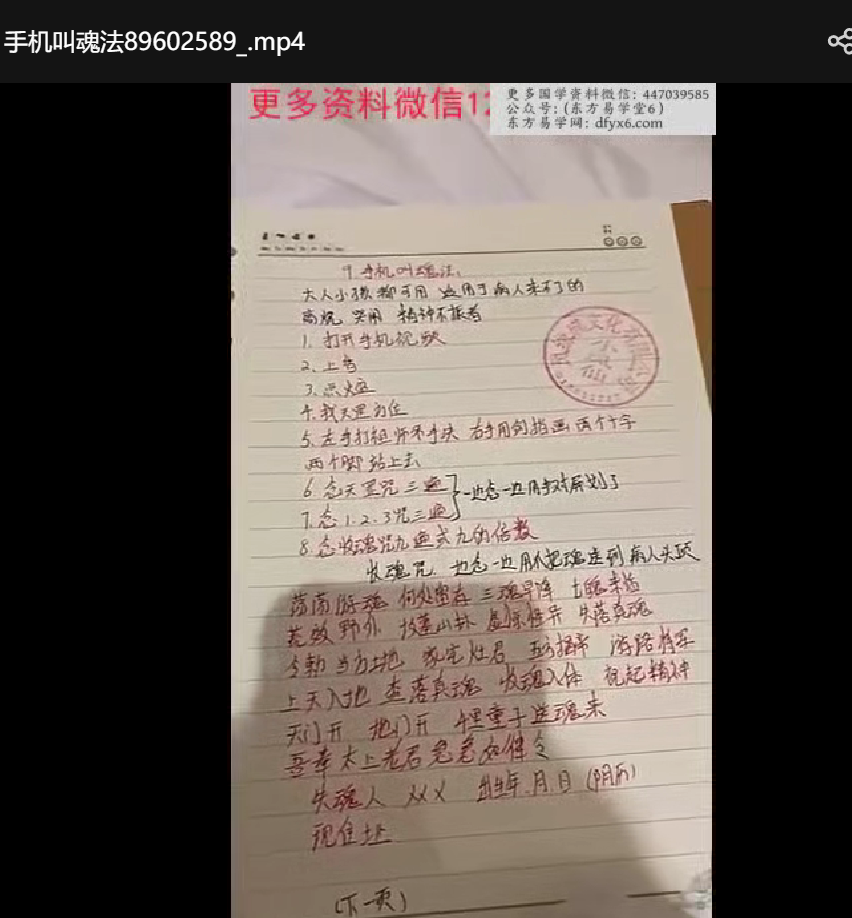 手机叫魂法89602589_.mp4
更多资料微信1
更多国学资料微信：447039585
公众号：(东方易学堂6)
东方易学网：dfyx6.com
9.手机叫魂法.
大人小孩都可用 适用于病人来不了的
高烧 哭闹 精神不振者
1. 打开手机视频
2. 上香
3. 点烟
4. 找天罡方位
5. 左手打祖师本手决 右手用剑指画两个十字
两个脚站上去
6. 念天罡咒三遍
7. 念1.2.3咒三遍
一边念一边用手对屏划了
8. 念收魂咒九遍或九的倍数
收魂咒. 边念一边用 把魂送到病人头顶
荡荡游魂 何处留存 三魂早降 七魄来临
荒效野外 失落真魂
今勅当方土地 家宅灶君 五方 游路将军
上天入地 查落真魂 收魂入体 祝起精神
天门开 地门开 童子送魂来
吾奉太上老君急急如律令
失魂人 XXX 出生年.月.日 (阴历)
现住址
(下一页)